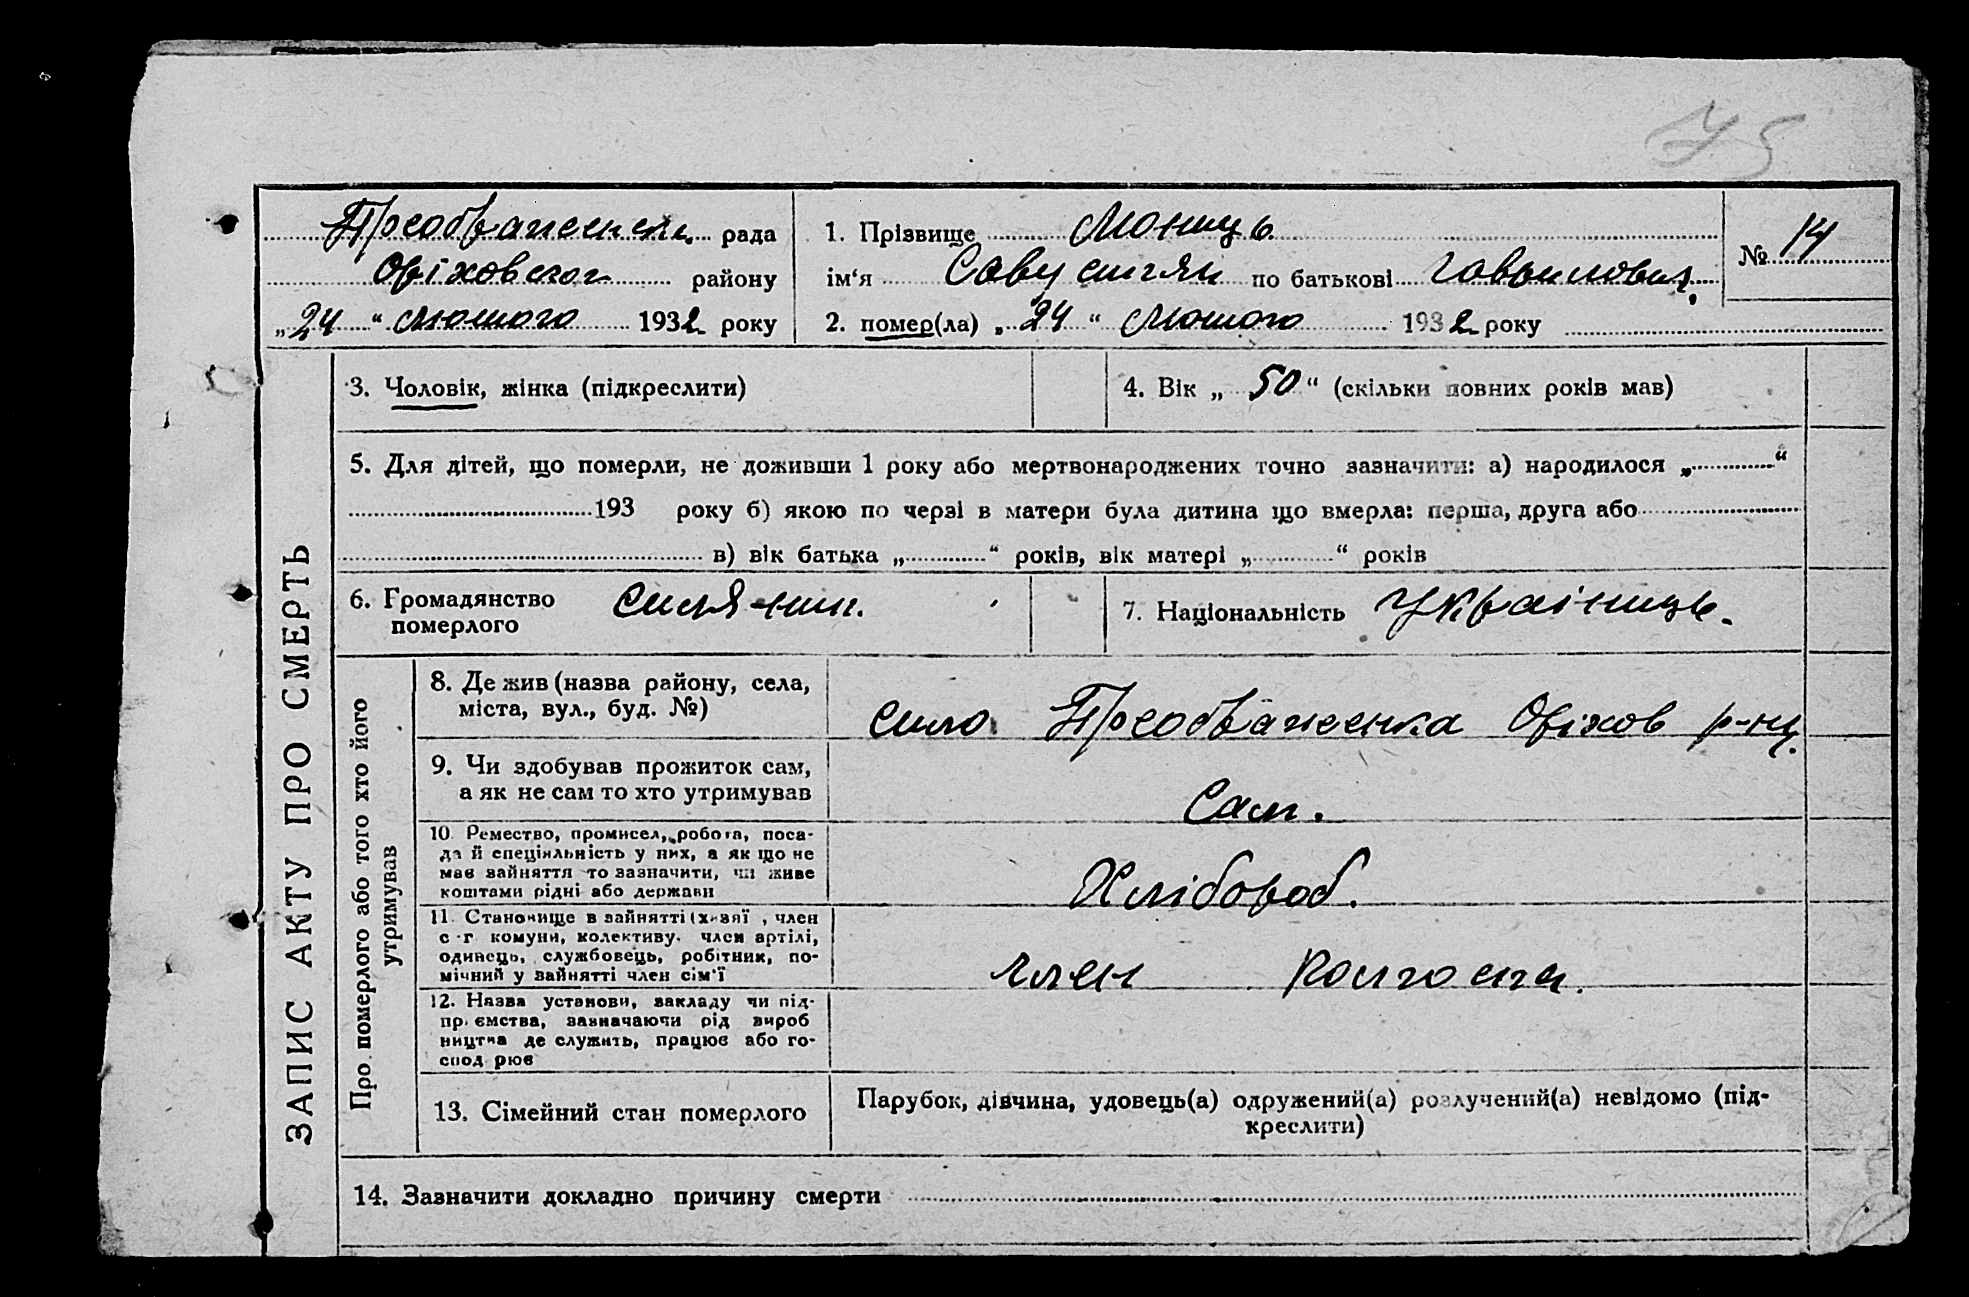 75
Преображенськ. рада
Оріховског району
„24“ лютого 1932 року
1. Прізвище
ім‘я по батькові Гаврилович
2. помер(ла) „24“ лютого 1932 року
№ 14
3. Чоловік, жінка (підкреслити)
4. Вік „50“ (скільки повних років мав)
5. Для дітей, що померли, не доживши 1 року або мертвонароджених точно зазначити: а) народилося „ “
193 року б) якою по черзі в матери була дитина що вмерла: перша, друга або
в) вік батька „ “ років, вік матері „ “ років
6. Громадянство
померлого
7. Національність Україниць.
8. Де жив (назва району, села,
міста, вул., буд. №)
село Преображенка Оріхов р-ну.
9. Чи здобував прожиток сам,
а як не сам то хто утримував
Сам.
10. Ремество, промисел, робота, поса-
да й спеціяльність у них, а як що не
має зайняття то зазначити, чи живе
коштами рідні або держави
Хлібороб.
11. Становище в зайнятті (хазяї , член
с-г комуни, колективу. член артілі,
одинець, службовець, робітник, по-
мічний у зайнятті член сім‘ї
член колгоспа.
12. Назва установи, закладу чи під-
приємства, зазначаючи рід вироб
ництва де служить, працює або го-
сподрює
13. Сімейний стан померлого
Парубок, дівчина, удовець(а) одружений(а) розлучений(а) невідомо (під-
креслити)
14. Зазначити докладно причину смерти
ЗАПИС АКТУ ПРО СМЕРТЬ
Про померлого або того хто його
утримував